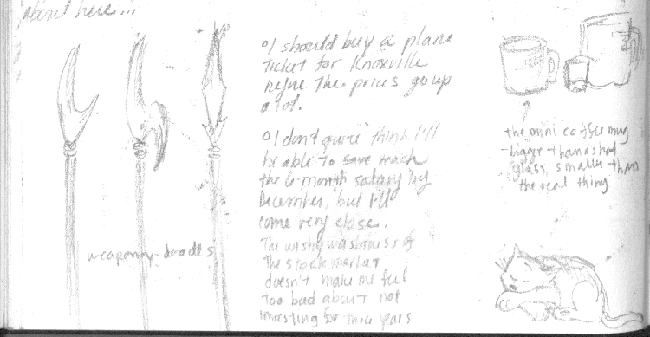 about here...
○ I should buy a plane
Ticket for Knoxville
before The prices go up
a lot.
○ I don't quite think I'll
be able to save reach
the 6-month salary by
December, but I'll
come very close.
The wishy washiness of
The stock market
doesn't make me feel
Too bad about not
investing for this
weaponry doodles
the mini coffee mug
bigger than a shot
glass, smaller than
the real thing